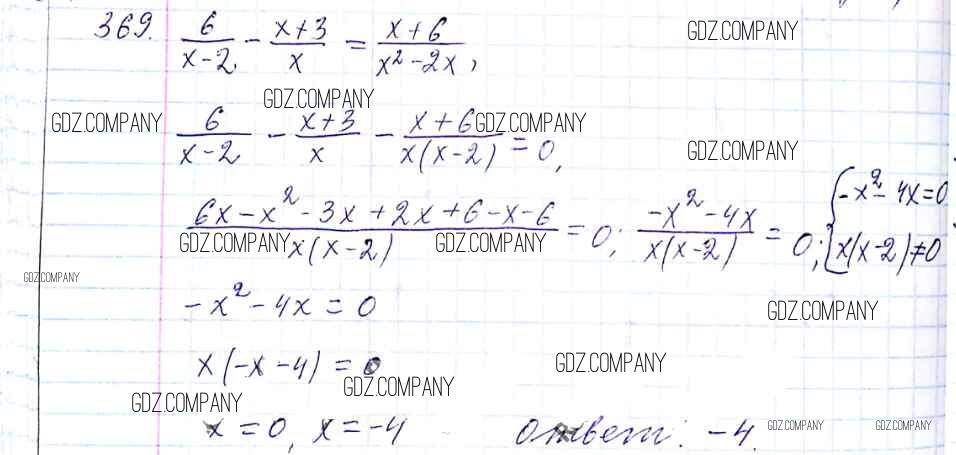 369. 6/(x-2) - (x+3)/x = (x+6)/(x²-2x),
GDZ.COMPANY
GDZ.COMPANY
6/(x-2) - (x+3)/x - (x+6)/(x(x-2)) = 0,
GDZ.COMPANY
GDZ.COMPANY
GDZ.COMPANY
(6x-x²-3x+2x+6-x-6)/(x(x-2)) = 0; (-x²-4x)/(x(x-2)) = 0; { -x²-4x=0
x(x-2)≠0
GDZ.COMPANY
GDZ.COMPANY
GDZ.COMPANY
-x²-4x=0
GDZ.COMPANY
x(-x-4)=0
GDZ.COMPANY
GDZ.COMPANY
GDZ.COMPANY
x=0, x=-4 Ответ: -4.
GDZ.COMPANY
GDZ.COMPANY